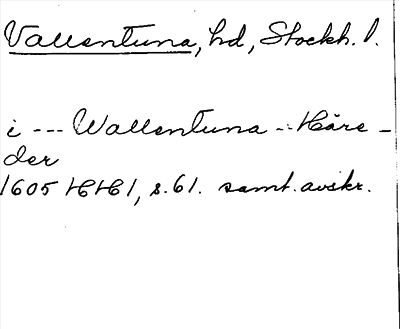 Vallentuna, hd, Stockh. l.
i --- Wallentuna --- Häre-
der
1605 HH 1, s. 61. samt. avskr.